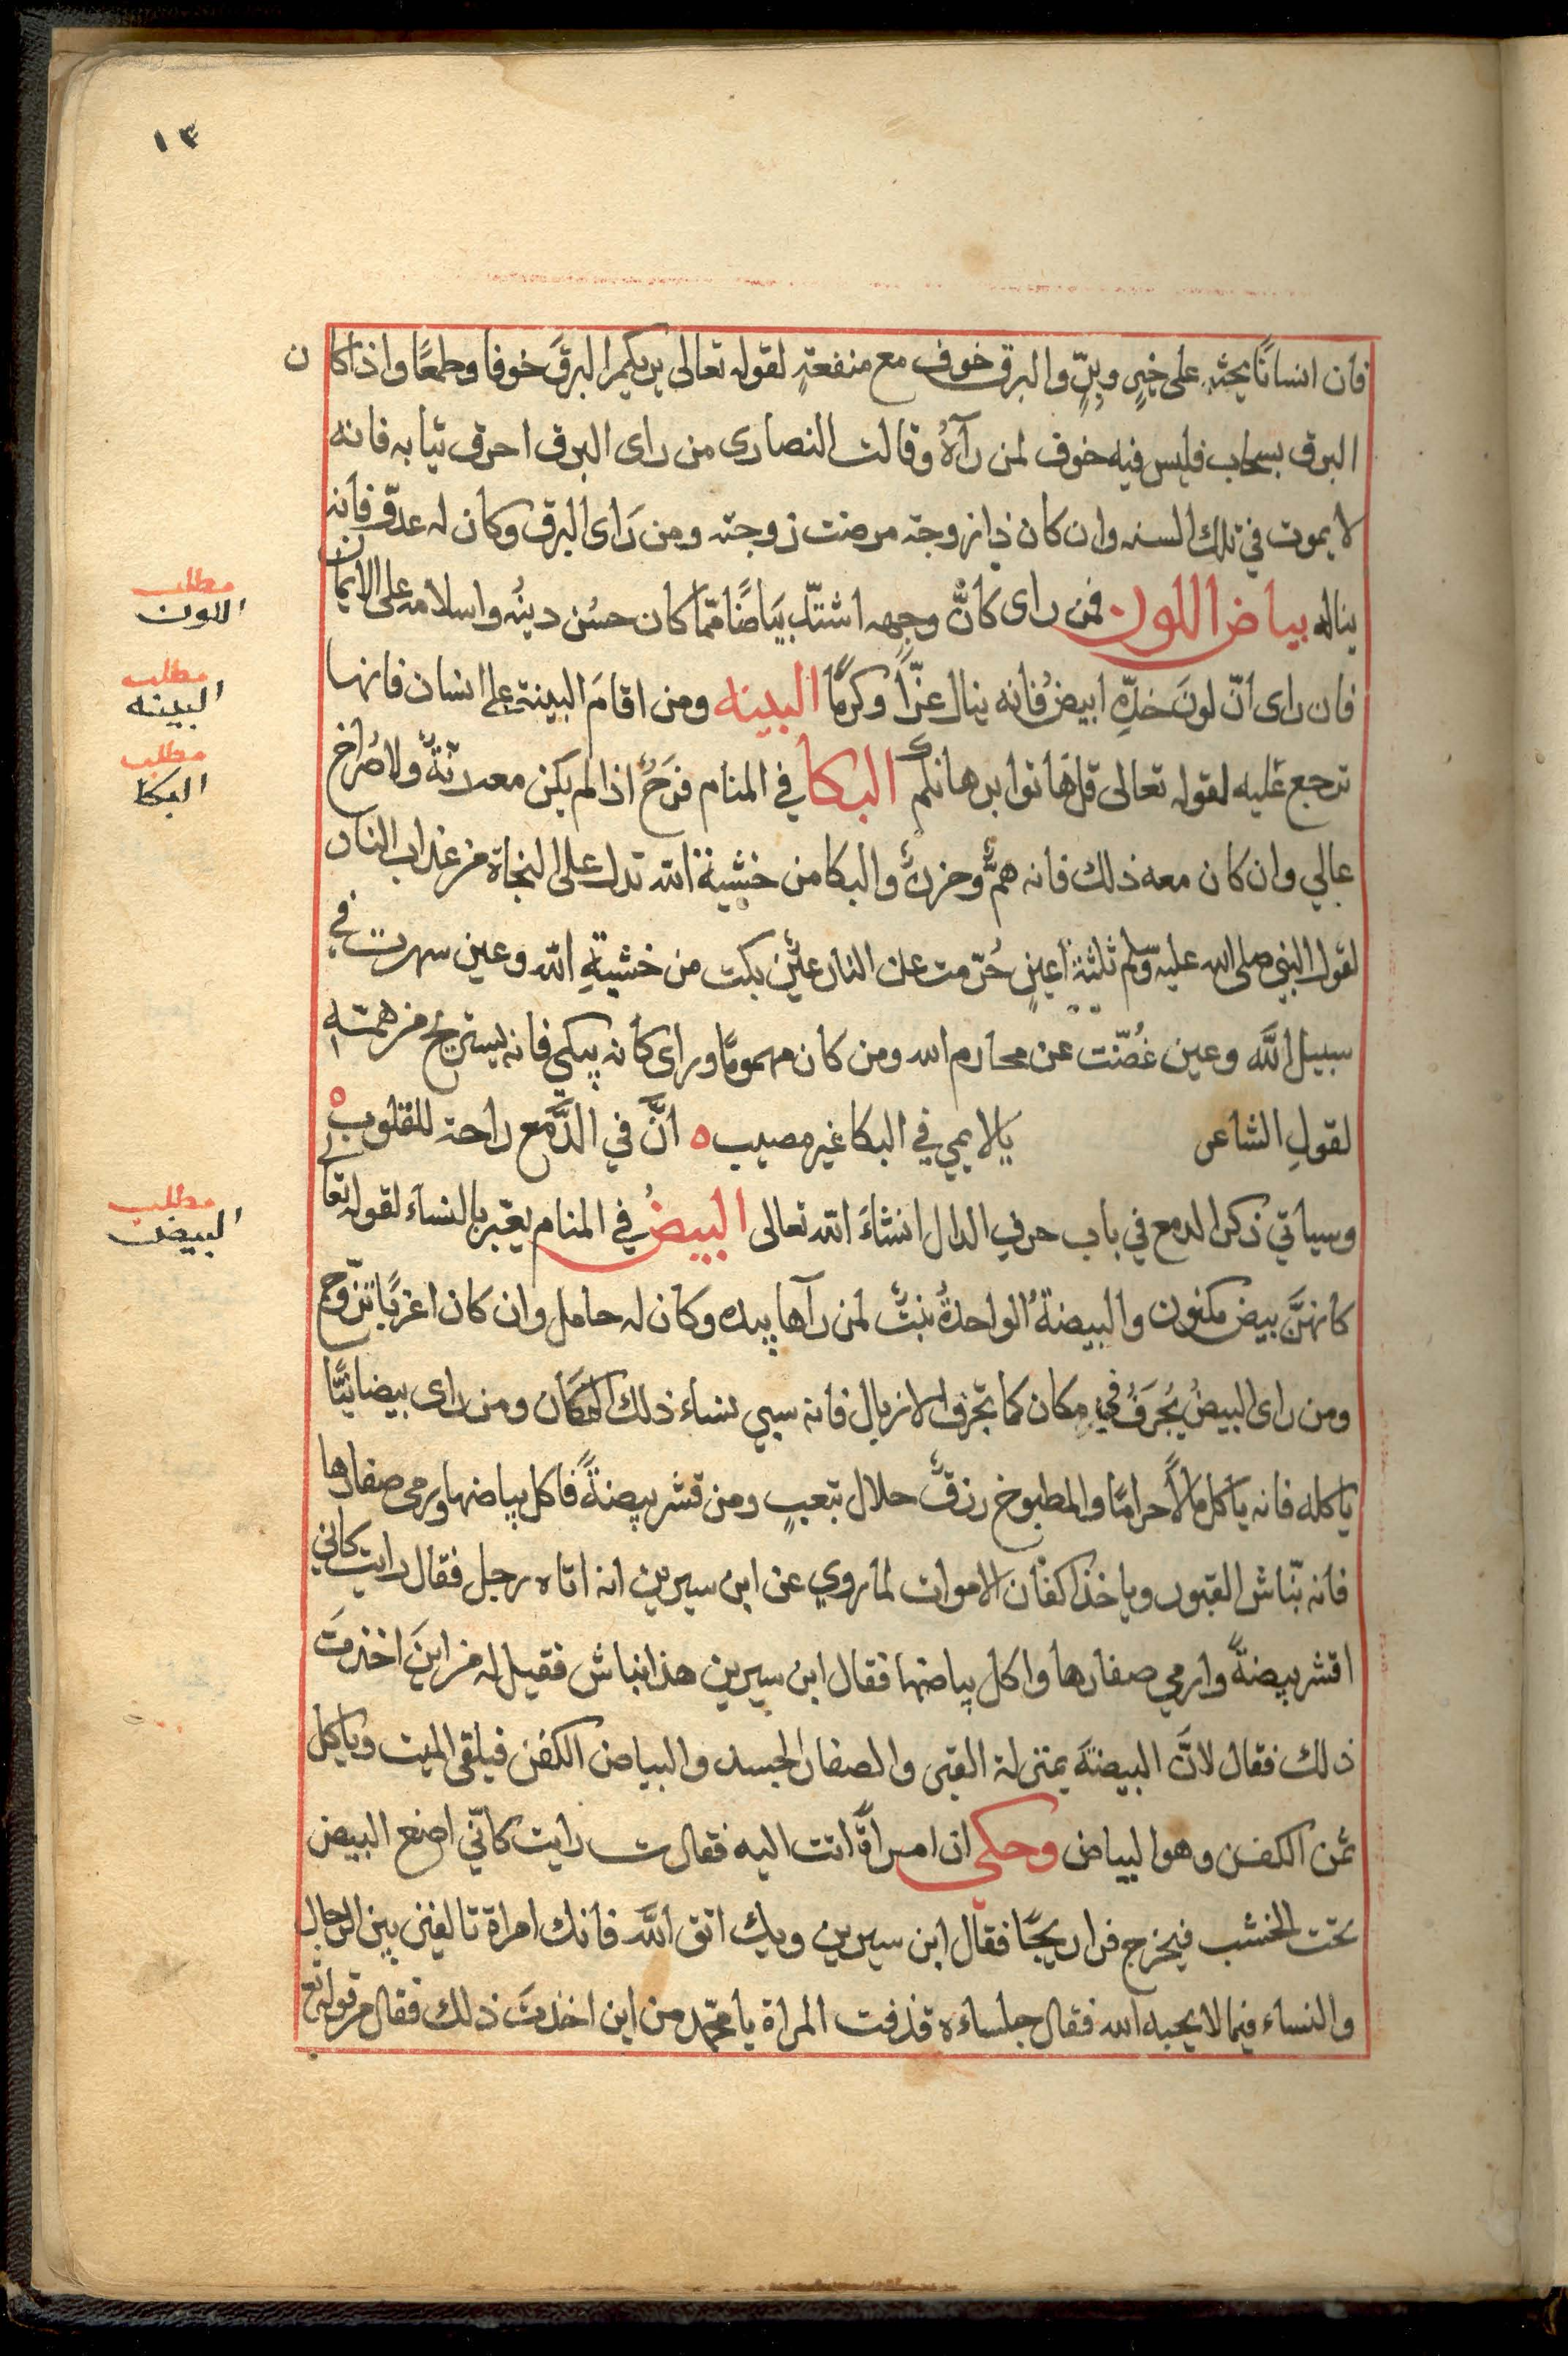 ١٣
فان انسانًا يحثه على خيرٍ وبرٍّ والبرق خوف مع منفعةٍ لقوله تعالى يريكم البرقَ خوفا وطمعًا واذا كان
البرق بسحاب فليس فيه خوف لمن رآهُ وقالت النصارى من راى البرق احرق ثيابه فانه
لا يموت في تلك السنه وان كان ذا زوجة مرضت زوجته ومن رَاى البرق وكان له عدوّ فانه
يناله بياض اللون فمن راى كانَّ وجهه اشتدّ بيَاضًا ممّا كان حسُن دينُه واسلامه على الايمان
فان راى انّ لونَ خدِّهِ ابيضُ فانه ينال عزّاً وكرمًا البينه ومن اقامَ البينة على انسان فانها
ترجع عليه لقوله تعالى قل هَاتوا برهانكم البكا في المنام فرَحٌ اذا لم يكن معه رنّةٌ ولا صُراخ
عالي وان كان معه ذلك فانه همٌّ وحزنٌ والبكا من خشية الله تدل على النجاة من عذاب النار
لقول النبي صلى الله عليه وسلم ثلثة اعينٍ حُرّمت على النار عينٌ بكت من خشيةِ الله وعين سهرت في
سبيل الله وعين غُضّت عن محارم الله ومن كان مهمومًا وراى كانه يبكي فانه يستريح من همه
لقولِ الشاعر يا لايمي في البكا غير مصيب ه انَّ في الدَّمع راحة للقلوب ه
وسياتي ذكر الدمع في باب حرف الدال انشاءَ الله تعالى البيضُ في المنام يعبّر بالنساء لقوله تعالى
كانهنَّ بيض مكنون والبيضةُ الواحدةُ بنتٌ لمن رآها بيده وكان له حامل وان كان اعزبًا تزوّج
ومن راى البيضُ يُجرَفُ في مكان كما تجرف الازبال فانه سبي نساء ذلك المكان ومن راى بيضا نيًّا
ياكله فانه ياكل مالاً حرامًا والمطبوخ رزقٌ حلال بتعبٍ ومن قشر بيضةً فاكل بياضها ورمى صفارها
فانه نبّاش القبور وياخذ اكفان الاموات لما روي عن ابن سيرين انه اتاه رجل فقال رايت كاني
اقشر بيضةً وارمي صفارها واكل بياضها فقال ابن سيرين هذا نباش فقيل له من اينَ اخذتَ
ذلك فقال لانَّ البيضَةَ بمنزلة القبر والصفار الجسد والبياض الكفن فيلقى الميت وياكل
ثمن الكفن وهو البياض وحكى ان امراةً اتت اليه فقالت رايت كانّي اضع البيض
تحت الخشب فيخرج فراريجًا فقال ابن سيرين ويلك اتق الله فانك امراة تالفين بين الرجال
والنساء فيما لا يحبه الله فقال جلساءه قذفت المراة يا محمّد من اين اخذتَ ذلك فقال من قوله تع
مطلب
اللون
مطلب
البينه
مطلب
البكا
مطلب
البيض